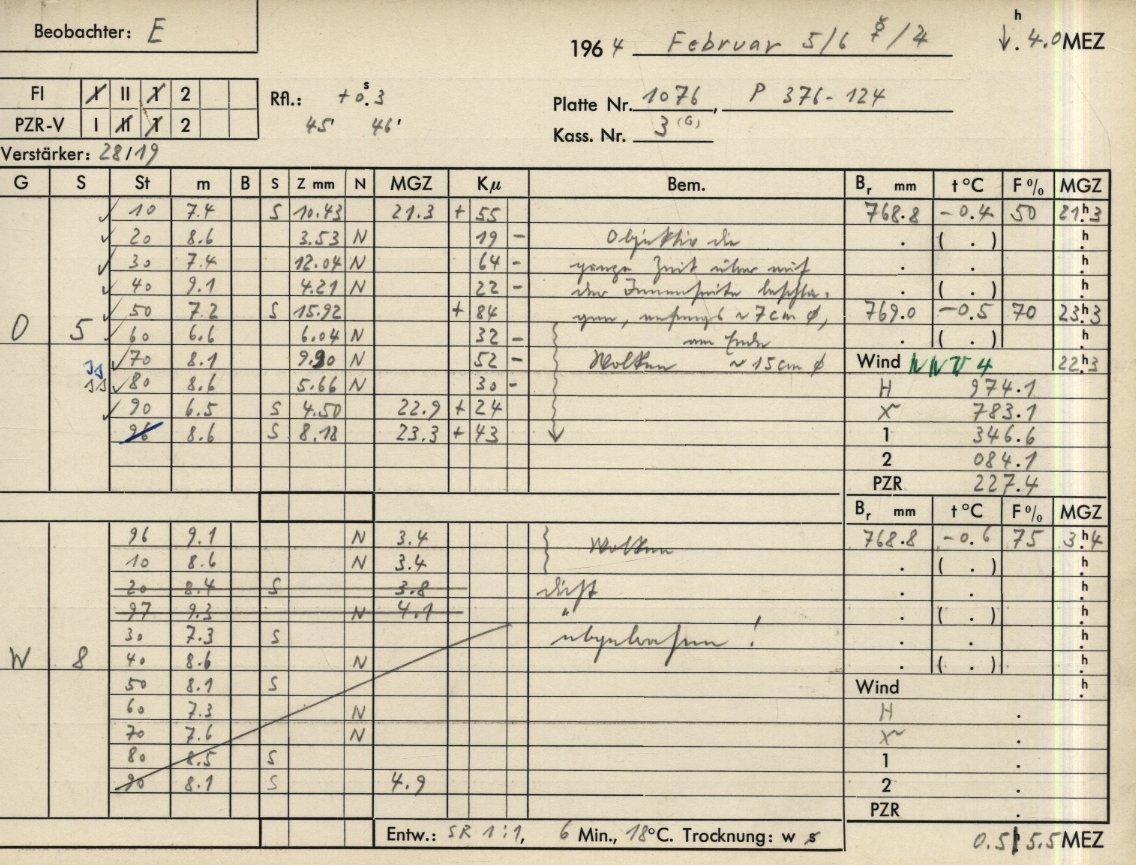 Beobachter: E
1964 Februar 5/6 ☿/♃ ↓. 4.0 h MEZ
FI I II 1 2 Rfl.: +0.ˢ3 Platte Nr. 1076, P 376-124
PZR-V I II 1 2 45' 46' Kass. Nr. 3 (G)
Verstärker: 28/19
G S St m B S Z mm N MGZ Kμ Bem. Br mm t °C F % MGZ
10 7.4 S 10.43 21.3 + 55 768.8 -0.4 50 21.ʰ3
20 8.6 3.53 N 19 - Objektiv die . ( . ) .ʰ
30 7.4 12.04 N 64 - ganze Zeit über auf . . .ʰ
40 9.1 4.21 N 22 - der Innenseite beschla- . ( . ) .ʰ
50 7.2 S 15.92 + 84 gen, anfangs ~ 7 cm ø, 769.0 -0.5 70 23.ʰ3
O 5 60 6.6 6.04 N 32 - am Ende . ( . ) .ʰ
70 8.1 9.90 N 52 - Wolken ~ 15 cm ø Wind NNW 4 22.ʰ3
80 8.6 5.66 N 30 - H 974.1
90 6.5 S 4.50 22.9 + 24 X 783.1
96 8.6 S 8.18 23.3 + 43 1 346.6
2 084.1
PZR 227.4
Br mm t °C F % MGZ
96 9.1 N 3.4 Wolken 768.8 -0.6 75 3.ʰ4
10 8.6 N 3.4 . ( . ) .ʰ
20 8.4 S 3.8 dicht . . .ʰ
97 9.3 N 4.1 " . ( . ) .ʰ
30 7.3 S abgebrochen! . . .ʰ
W 8 40 8.6 N . ( . ) .ʰ
50 8.1 S Wind .ʰ
60 7.3 N H .
70 7.6 N X .
80 8.5 S 1 .
90 8.1 S 4.9 2 .
PZR .
Entw.: SR 1:1, 6 Min., 18°C. Trocknung: w s 0.5 ʰ 5.5 MEZ